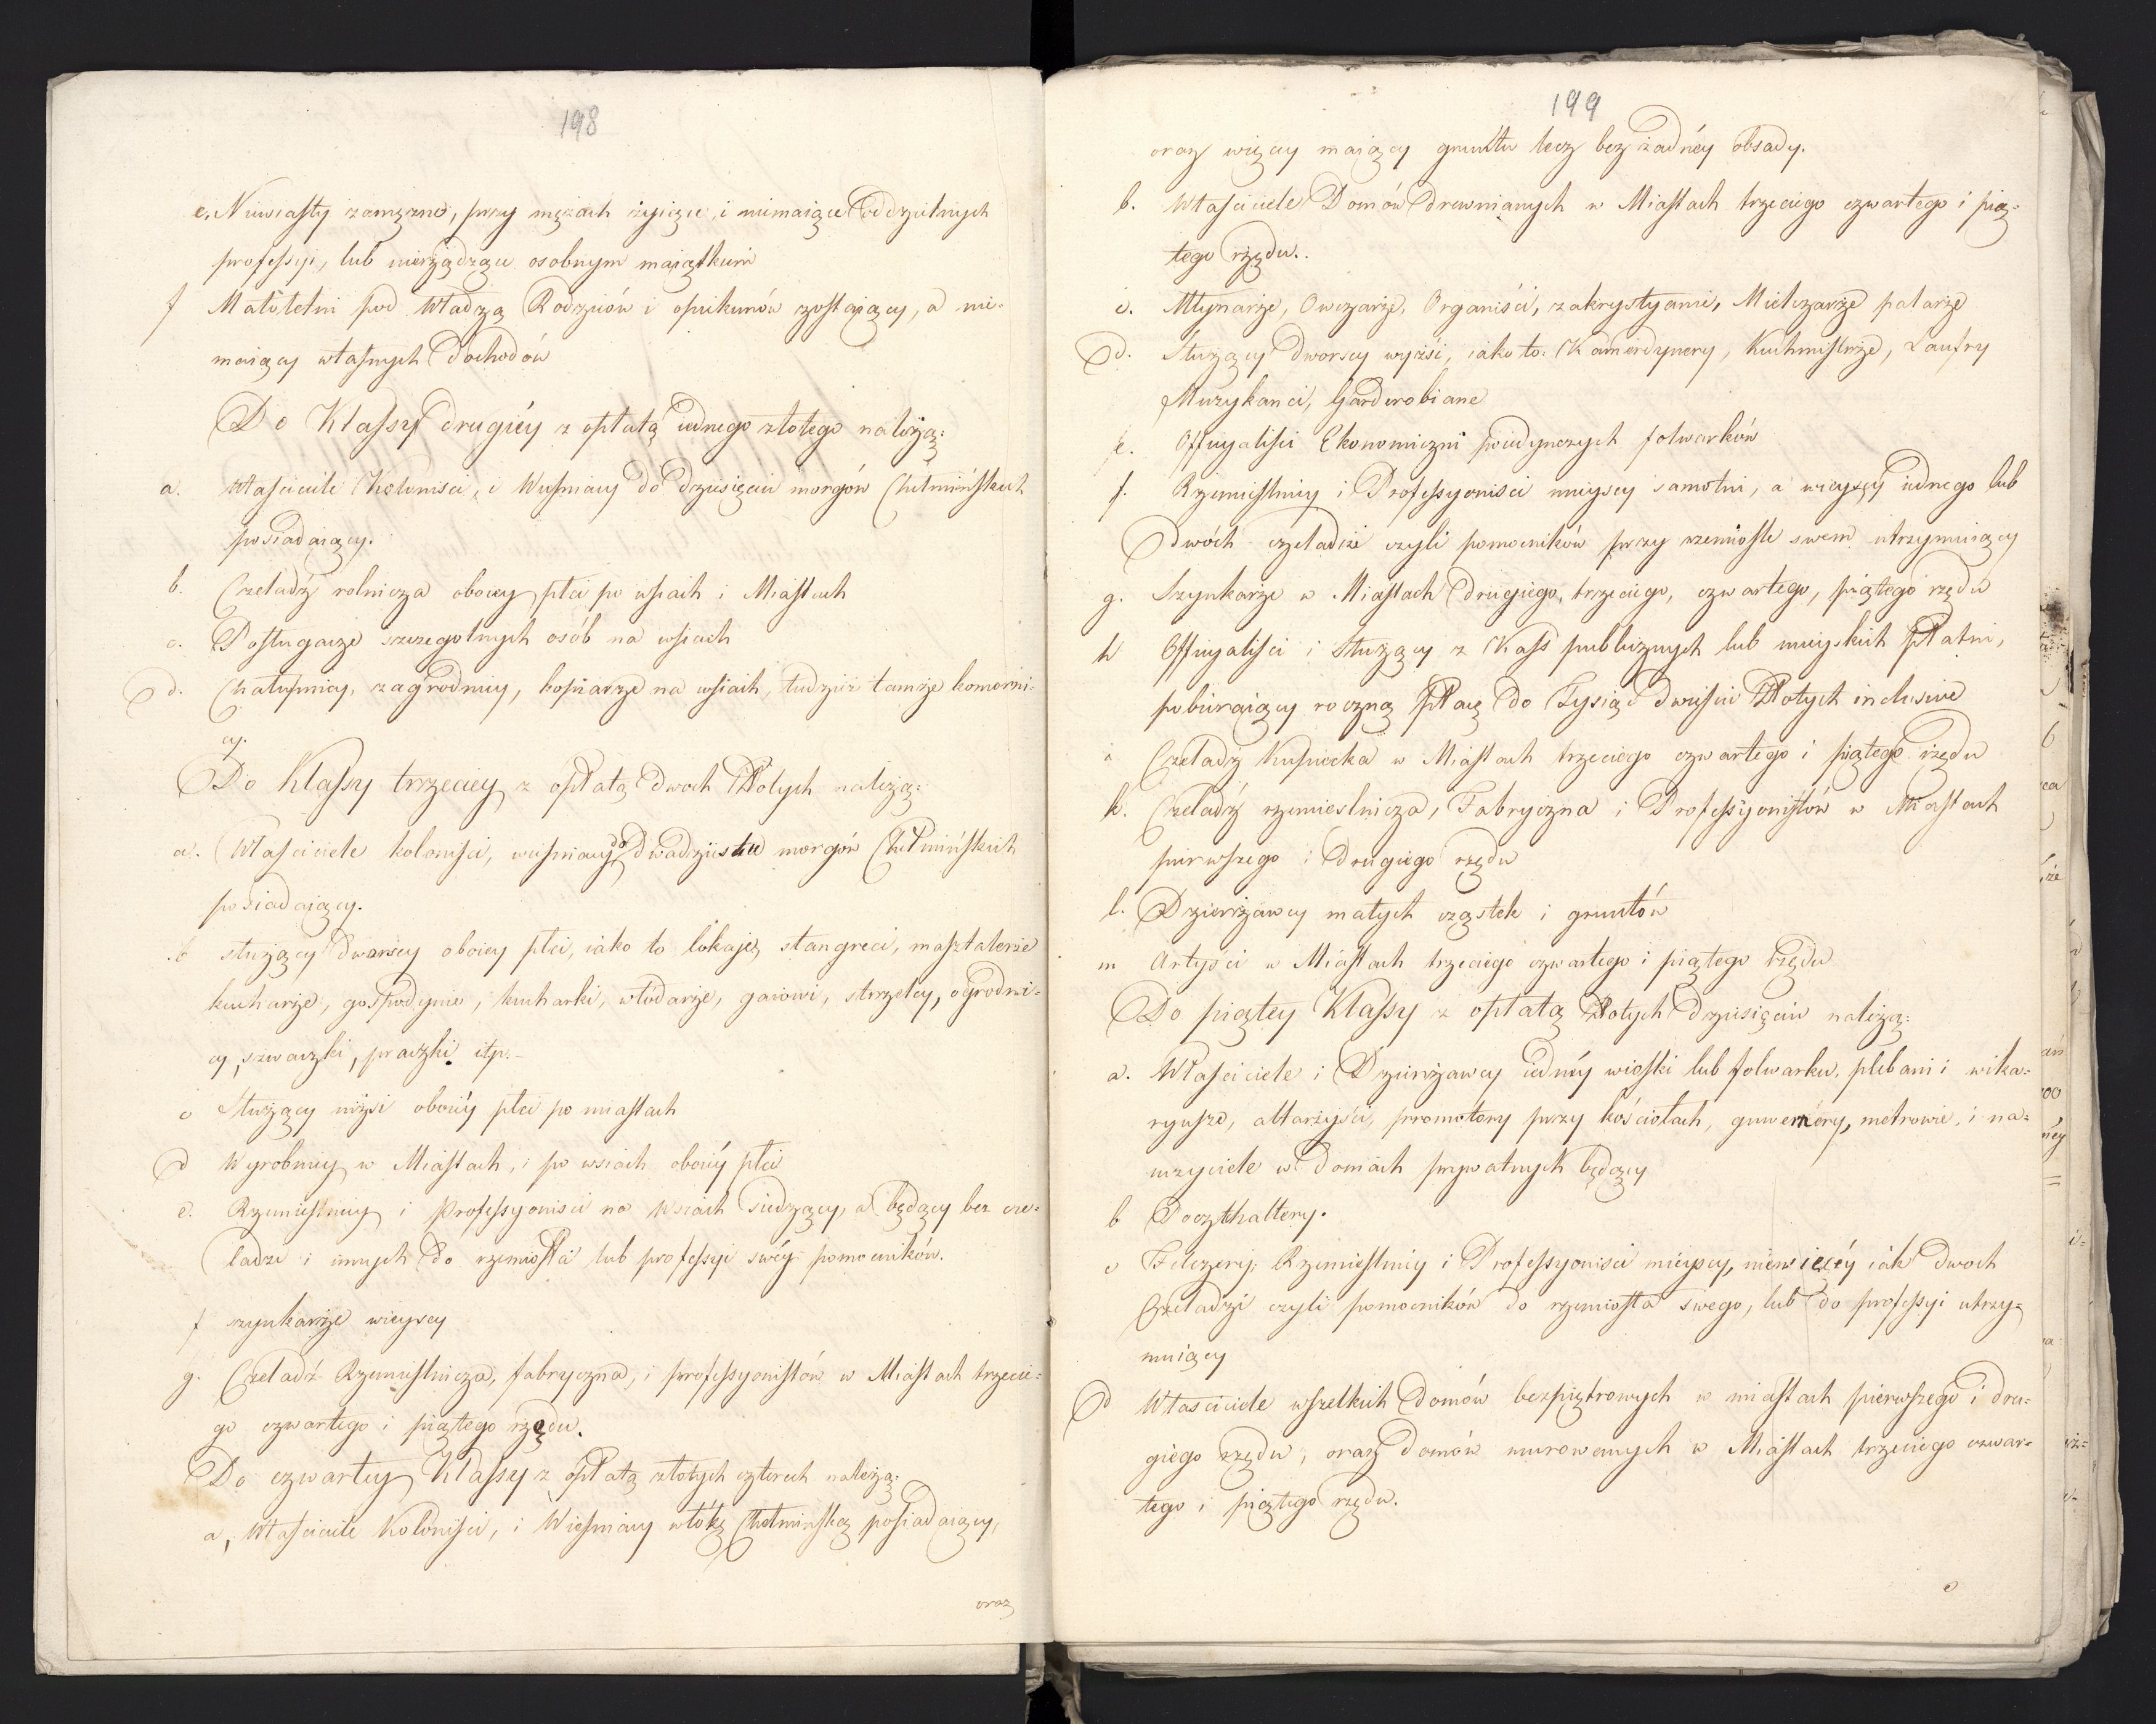 198
e. Niewiasty zamężne, przy mężach żyiące, i niemaiące oddzielnych
professyi, lub nierządzące osobnym maiątkiem
f Małoletni pod władzą Rodziców i opiekunów zostaiący, a nie-
maiący własnych dochodów
Do Klassy drugiéy z opłatą iednego złotego należą:
a. Właściciele Koloniści, i Wieśniacy do dziesięciu morgów Chełmińskich
posiadaiący.
b. Czeladź rolnicza oboiey płci po wsiach i Miastach
c. Posługacze szczegolnych osób na wsiach
d. Chałupnicy, zagrodnicy, kopiarze na wsiach, tudzież tamże komorni-
cy.
Do Klassy trzeciey z opłatą dwoch Złotych należą:
a. Właściciele koloniści, wieśniacy do dwadziestu morgów Chełmińskich
posiadaiący.
b służący dworscy oboiey płci, iako to lokaje, stangreci, masztalerze
kucharze, gospodynie, kucharki, włódarze, gaiowi, strzelcy, ogrodni-
cy, szwaczki, praczki itp.-
c Służący niżsi oboiéy płci po miastach
d Wyrobnicy w Miastach, i po wsiach oboiéy płci
e. Rzemieślnicy i Professyonisci na Wsiach siedzący, a będący bez cze-
ladzi i innych do rzemiosła lub professyi swéy pomocników.
f szynkarze wieyscy
g. Czeladź Rzemieślnicza, fabryczna, i professyonistów w Miastach trzecie-
go czwartego i piątego rzędu.
Do czwartey Klassy z opłatą złotych czterech należą:
a, Właściciele Koloniści, i Wieśniacy włókę Chełmińską posiadaiący,
oraz
199
oraz więcey maiący gruntu lecz bez żadnéy obsady.
b. Właściciele Domów drewnianych w Miastach trzeciego czwartego i pią-
tego rzędu.
c. Młynarze, Owczarze, Organiści, zakrystyanie, Mielczarze palarze
d. Służący dworscy wyżsi, iako to: Kamerdynery, Kuchmistrze, Laufry
Muzykanci, Garderobiane
e. Officyaliści Ekonomiczni poiedynczych folwarków
f. Rzemieślnicy i Professyoniści mieyscy samotni, a wieyscy iednego lub
dwóch czeladzi czyli pomocników przy rzemiośle swem utrzymuiący
g. Szynkarze w Miastach drugiego, trzeciego, czwartego, piątego rzędu
h Officyaliści i Służący z Kass publicznych lub mieyskich Płatni,
pobieraiący roczną Płacę do Tysiąc dwieście Złotych inclusive
i Czeladź Kupiecka w Miastach trzeciego czwartego i piątego rzędu
k. Czeladź rzemieslnicza, Fabryczna i Professyonistów w Miastach
pierwszego i drugiego rzędu
l. Dzierżawcy małych cząstek i gruntów
m Artyści w Miastach trzeciego czwartego i piątego rzędu
Do piątey Klassy z opłatą Złotych dziesięciu należą:
a. Właściciele i Dzierżawcy iednéy wioski lub folwarku, plebani i wika-
ryusze, altarzyści, promotory przy kościołach, guwernery, metrowie, i na-
uczyciele w domach prywatnych będący
b Poczthaltery.
c Felczery, Rzemieślnicy i Professyonisci mieyscy, niewięcéy iak dwoch
Czeladzi czyli pomocników do rzemiosła swego, lub do professyi utrzy-
muiący
d Właściciele wszelkich domów bezpiętrowych w miastach pierwszego i dru-
giego rzędu, oraz domów murowanych w Miastach trzeciego czwar-
tego i piątego rzędu.
e